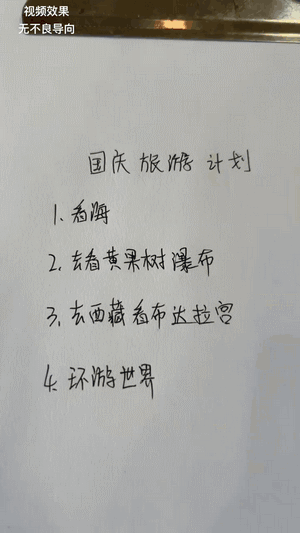 视频效果
无不良导向
国庆旅游计划
1. 看海
2. 去看黄果树瀑布
3. 去西藏看布达拉宫
4. 环游世界